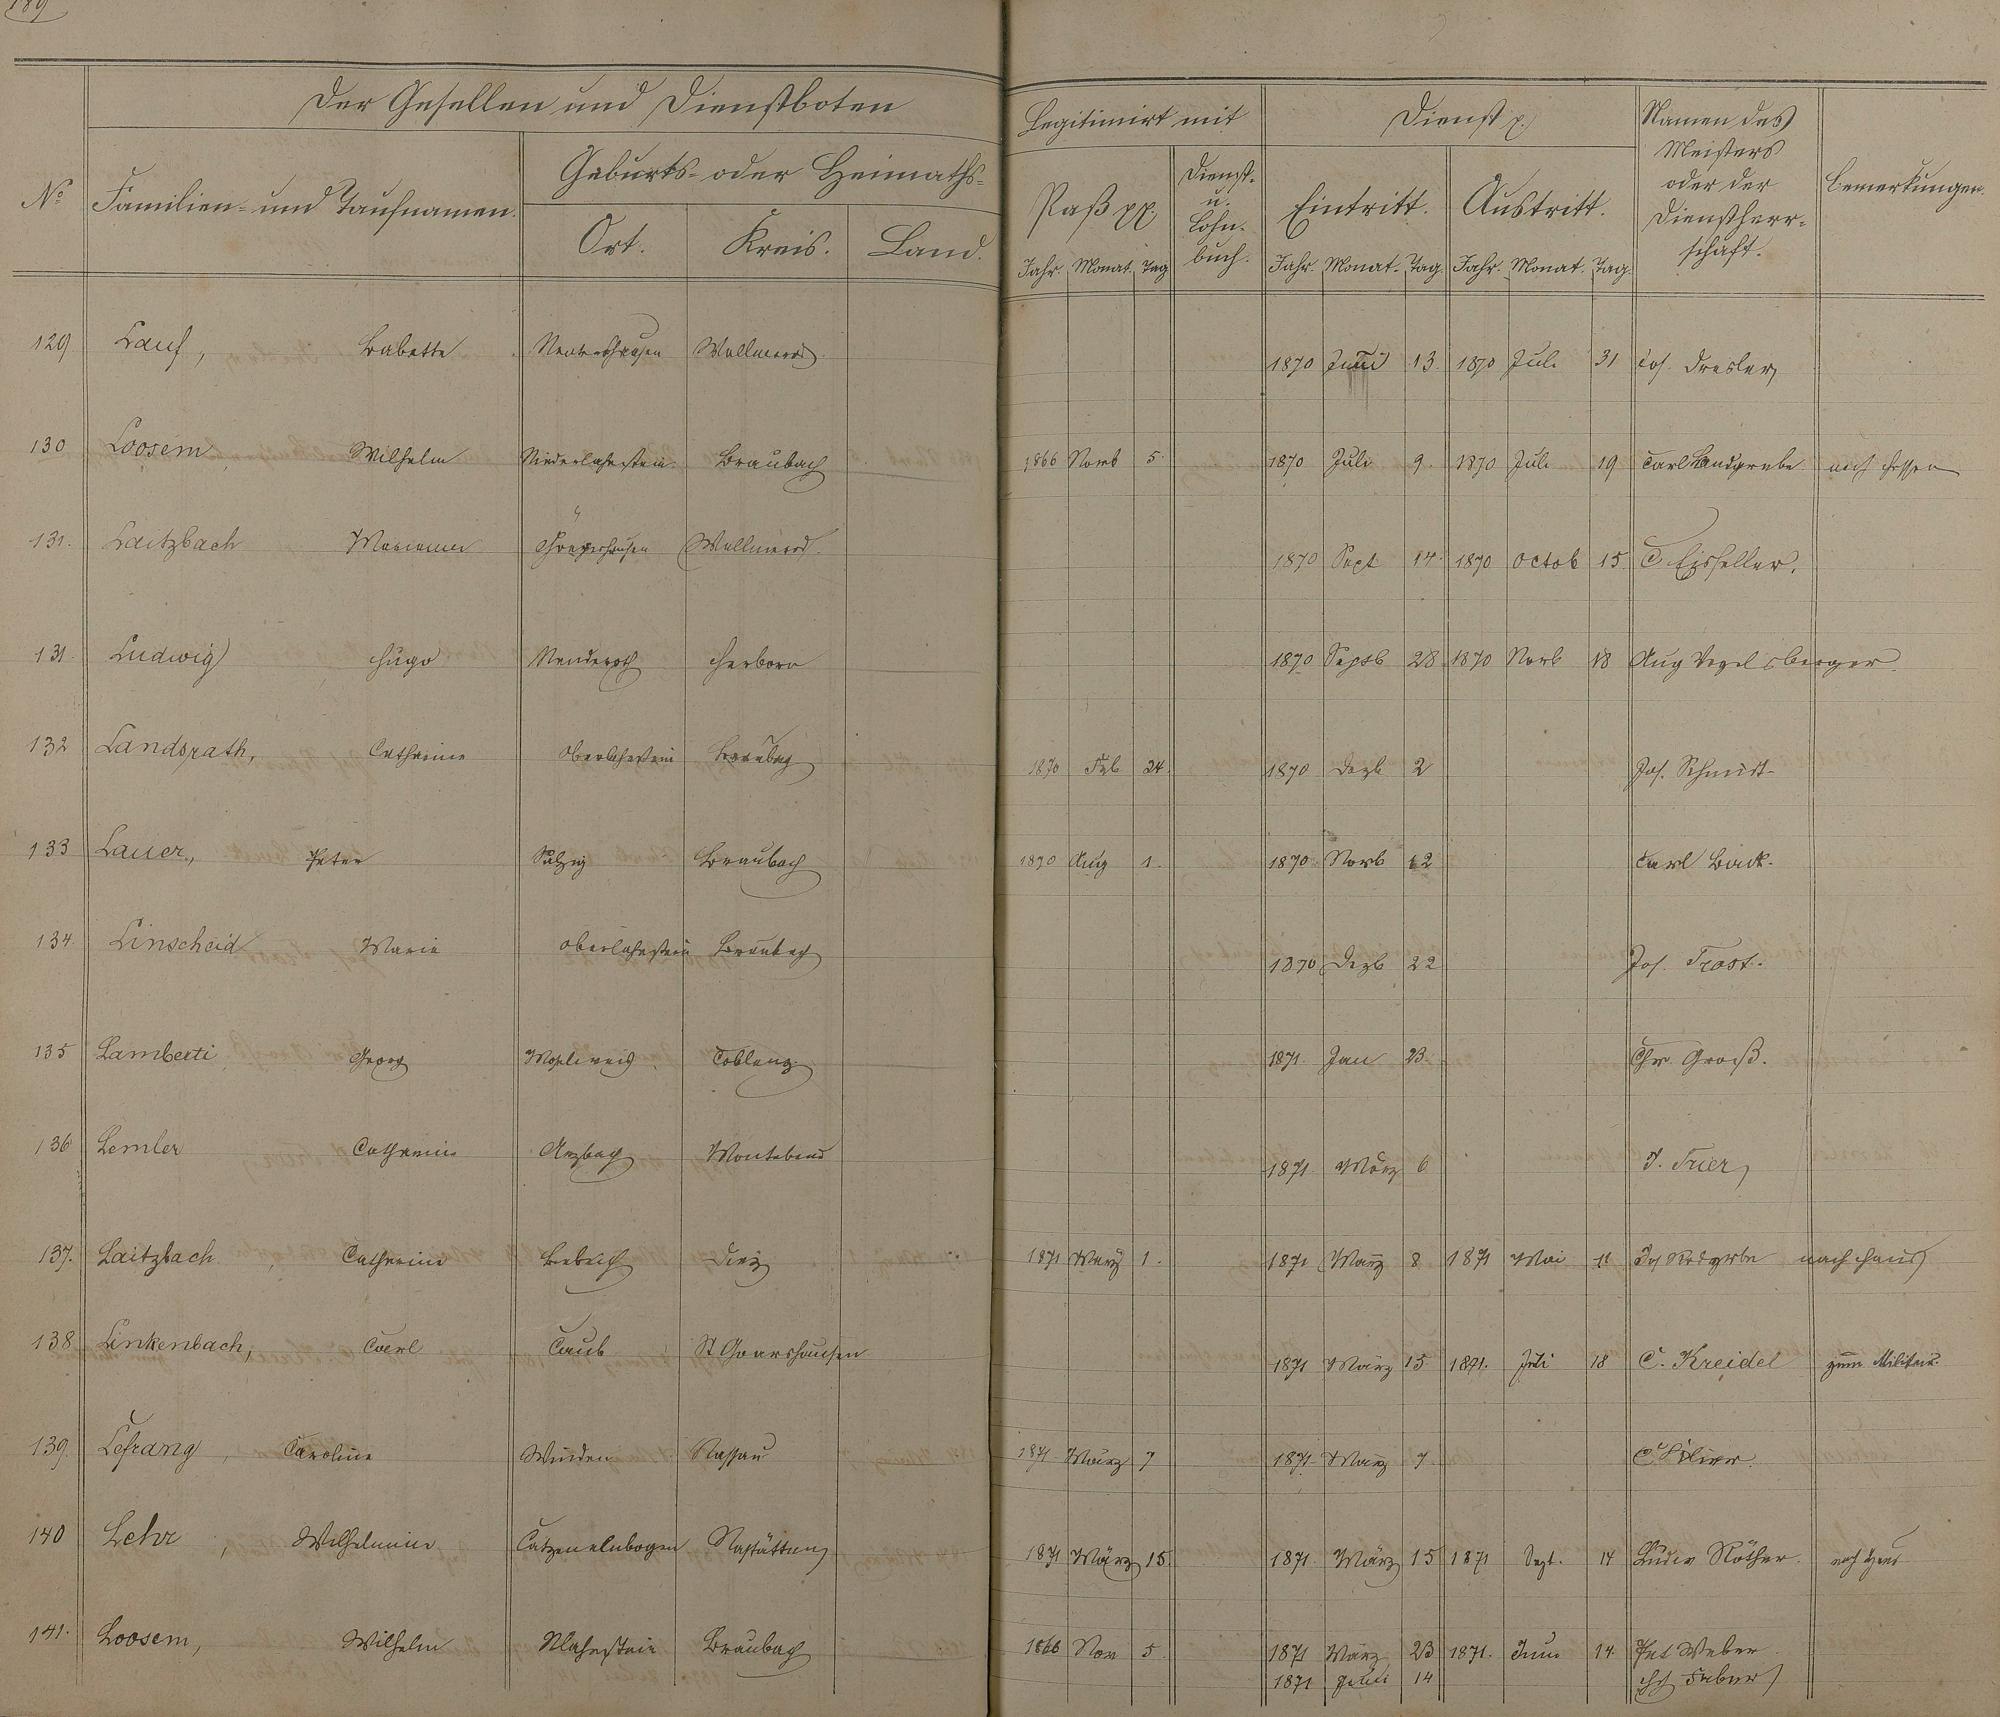 189
Der Gesellen und Dienstboten
Legitimirt mit
Dienst p.
Namen des Meisters oder der Dienstherr-schaft.
Bemerkungen.
No
Familien- und Taufnamen.
Geburts- oder Heimaths-
Ort. Kreis. Land.
Paß pp.
Dienst- u. Lohn-buch.
Eintritt. Austritt.
Jahr. Monat. Tag Jahr. Monat. Tag. Jahr. Monat. Tag.
129 Lauf, Babette Nentershausen Wallmerod 1870 Juni 13. 1870 Juli 31 Jos. Dresler
130 Loosem, Wilhelm Niederlahnstein Braubach 1866 Novb 5. 1870 Juli 9. 1870 Juli 19 Carl Landgrebe nach Hessen
131. Laitzbach Wallmerod. 1870 Sept 14. 1870 Octob 15 C. Eisfeller.
131 Ludwig Hugo Nenderoth Herborn 1870 Septb 28 1870 Novb 18 Aug Vogelsberger
132 Landsrath, Catharine Oberlahnstein Braubach 1870 Feb 24. 1870 Dezb 2 Jos. Schmidt-
133 Lauer, Peter Salzig Braubach 1870 Aug 1. 1870 Novb 12 Carl Back.
134. Linscheid Marie Oberlahnstein Braubach 1870 Dezb 22 Jos. Trost.
135 Lamberti Georg Moselweis Coblenz 1871. Jan 23 Chr. Groß.
136 Lemler Catharine Arzbach Montabaur 1871 März 6 J. Trier
137. Laitzbach, Catharine Diez 1871 März 1. 1871 März 8 1871 Mai 11 nach Haus
138 Linkenbach, Carl Caub St Goarshausen 1871 März 15 1871. Juli 18 C. Kreidel zum Militair.
139. Lefrang, Caroline Winden Nassau 1871 März 7 1871 März 7
140 Lehr, Wilhelmine Catzenelnbogen Nastätten 1871 März 15. 1871 März 15 1871 Sept. 14 Ludw Köther. nach Haus
141. Loosem, Wilhelm NLahnstein Braubach 1866 Nov 5. 1871 März 23 1871. Juni 14. Pet Weber
1871 Juni 14 Faber